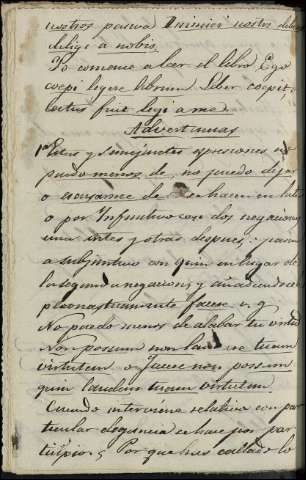 nostros pueva Inimici nostri debent
diligi a nobis.
Yo comence a leer el libro Ego
coepi legere librum. Liber coepit
tus fuit legi a me.
Advertencias
1ª Estas y semejantes expresiones no
puedo menos de, no puedo dejar
o escusarme de se hacen en latin
o por Infinitivo con dos negaciones
una antes y otra despues:
a subjuntivo con quin en lugar de
la segunda negacion, y añadiendo
pleonasticamente facere. v. g.
No puedo menos de alabar tu virtud
Non possum non lau tuam
virtutem. o facere non possum
quin laudem tuam virtutem.
Cuando interviene relativo con par
ticular elegancia se hace por par
ticipio. Por que has callado lo